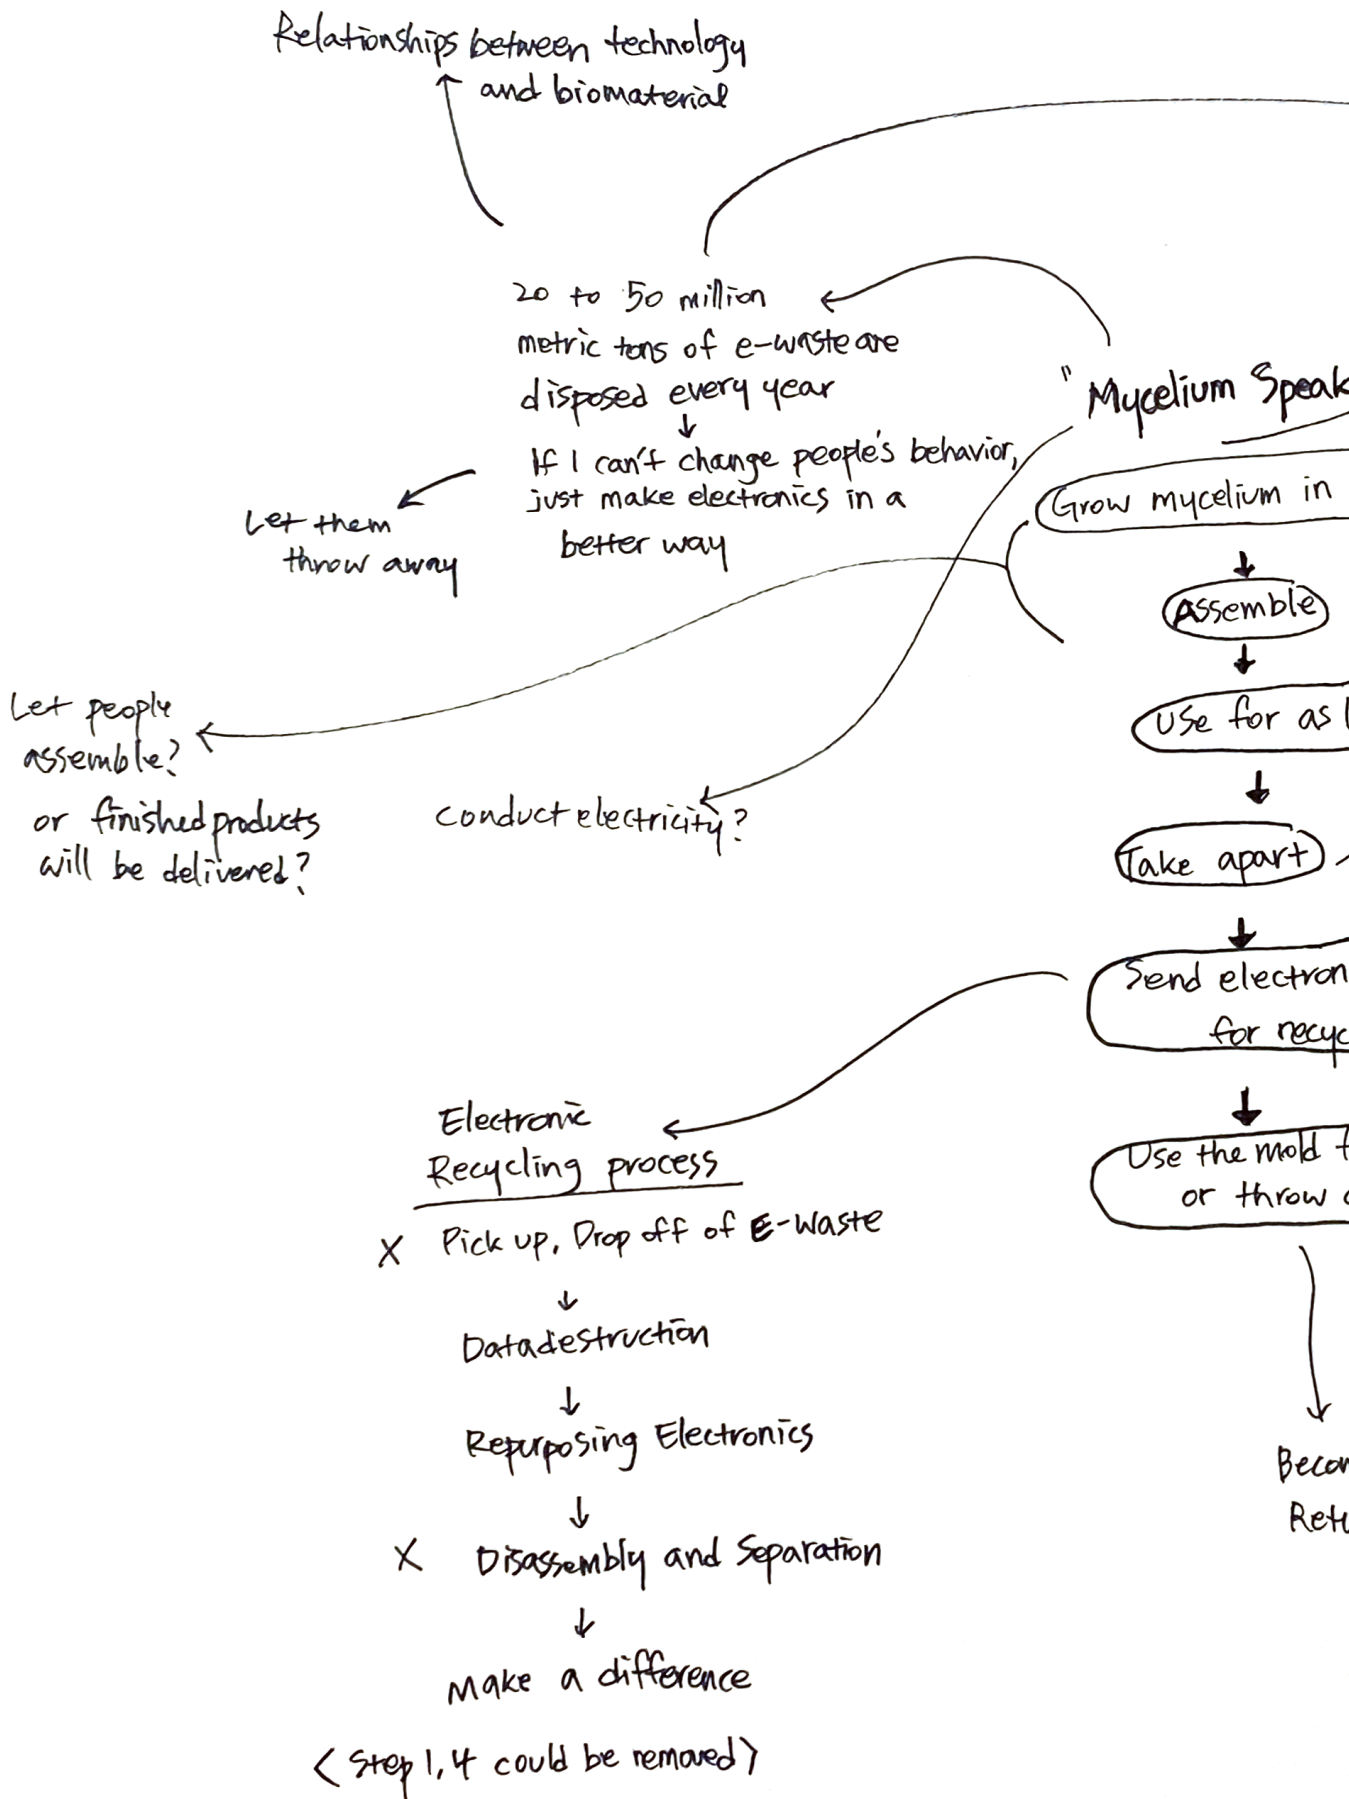 Relationships between technology
and biomaterial
20 to 50 million
metric tons of e-waste are
disposed every year
If I can't change people's behavior,
just make electronics in a
better way
Let them
throw away
Let people
assemble?
or finished products
will be delivered?
conduct electricity?
"Mycelium Speak
Grow mycelium in
Assemble
Use for as l
Take apart
Send electron
for recyc
Use the mold f
or throw a
Becom
Retu
Electronic
Recycling process
X Pick up, Drop off of E-waste
Data destruction
Repurposing Electronics
X Disassembly and Separation
Make a difference
<Step 1, 4 could be removed>